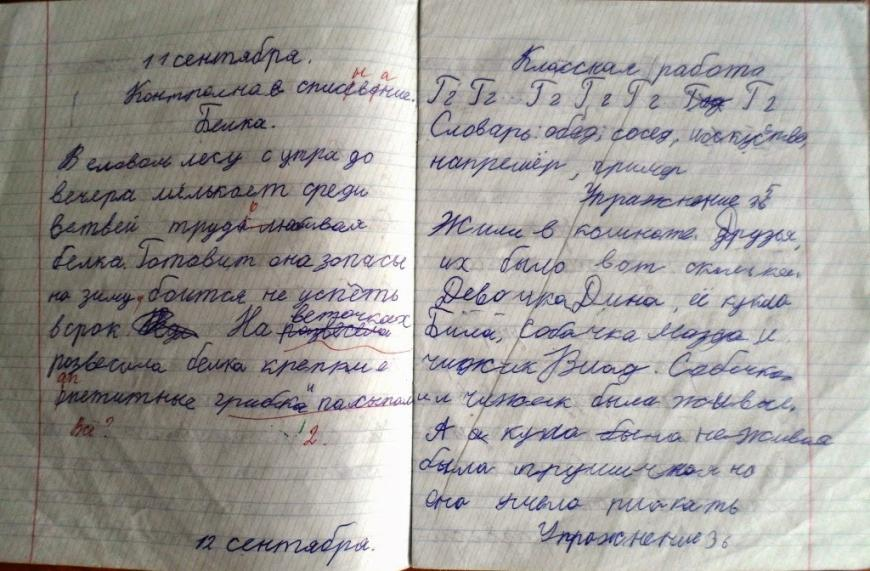 11 сентября.
Контрольнав списование.
н а
Белка.
В еловом лесу с утра до
вечера мелькает среди
ветвей трудолюбивая
белка. Готовит она запасы
на зиму, боится не успеть
в срок. На веточках
развесила
розвесила белка крепкие
ап
опетитные грибки
За? 2.
12 сентября.
Классная работа
Гг Гг Гг Гг Гг Гг
Словарь: обед, сосед, искуство,
напремер,ример
Упражнение 35
Жили в комноте друзья,
их было вот сколька.
Девочка Дина, её кукла
Била, собачка Мазда и
чижик Влад. Сабачка
и чижек была живые.
А а кукла была не живая
была но
она умела плакать
Упрожнение 36